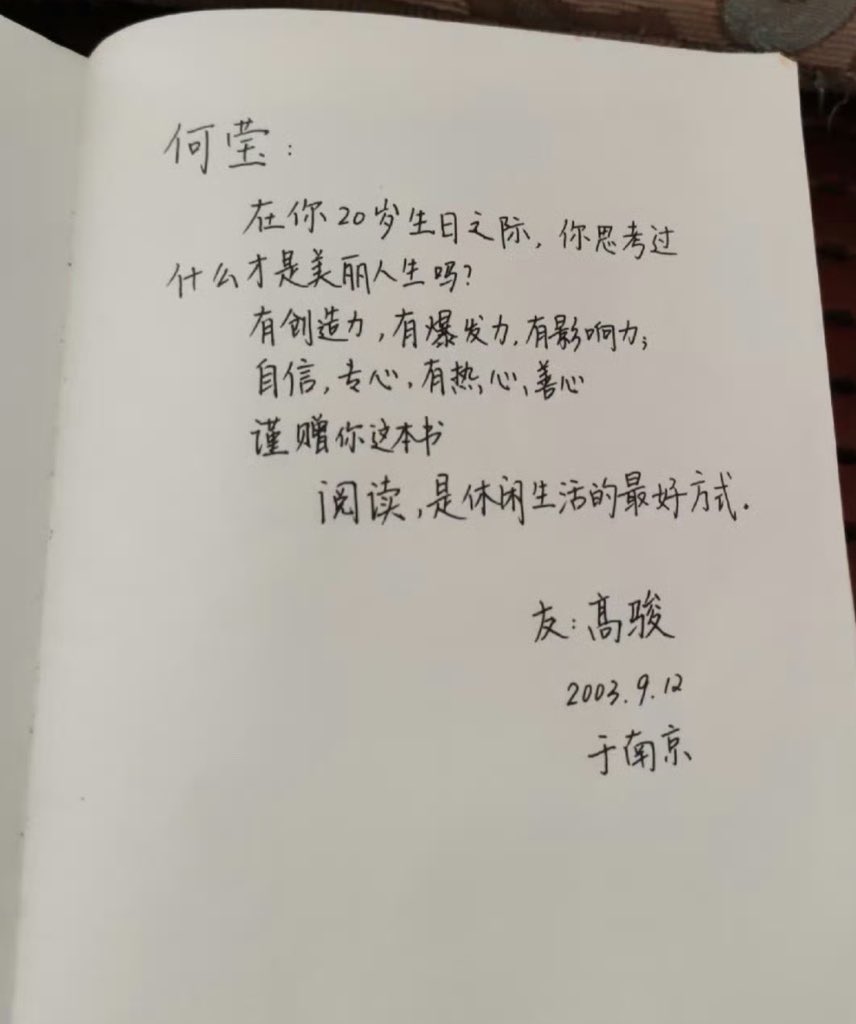 何莹：
在你20岁生日之际，你思考过
什么才是美丽人生吗？
有创造力，有爆发力，有影响力；
自信，专心，有热心、善心
谨赠你这本书
阅读，是休闲生活的最好方式．
友：高骏
2003.9.12
于南京